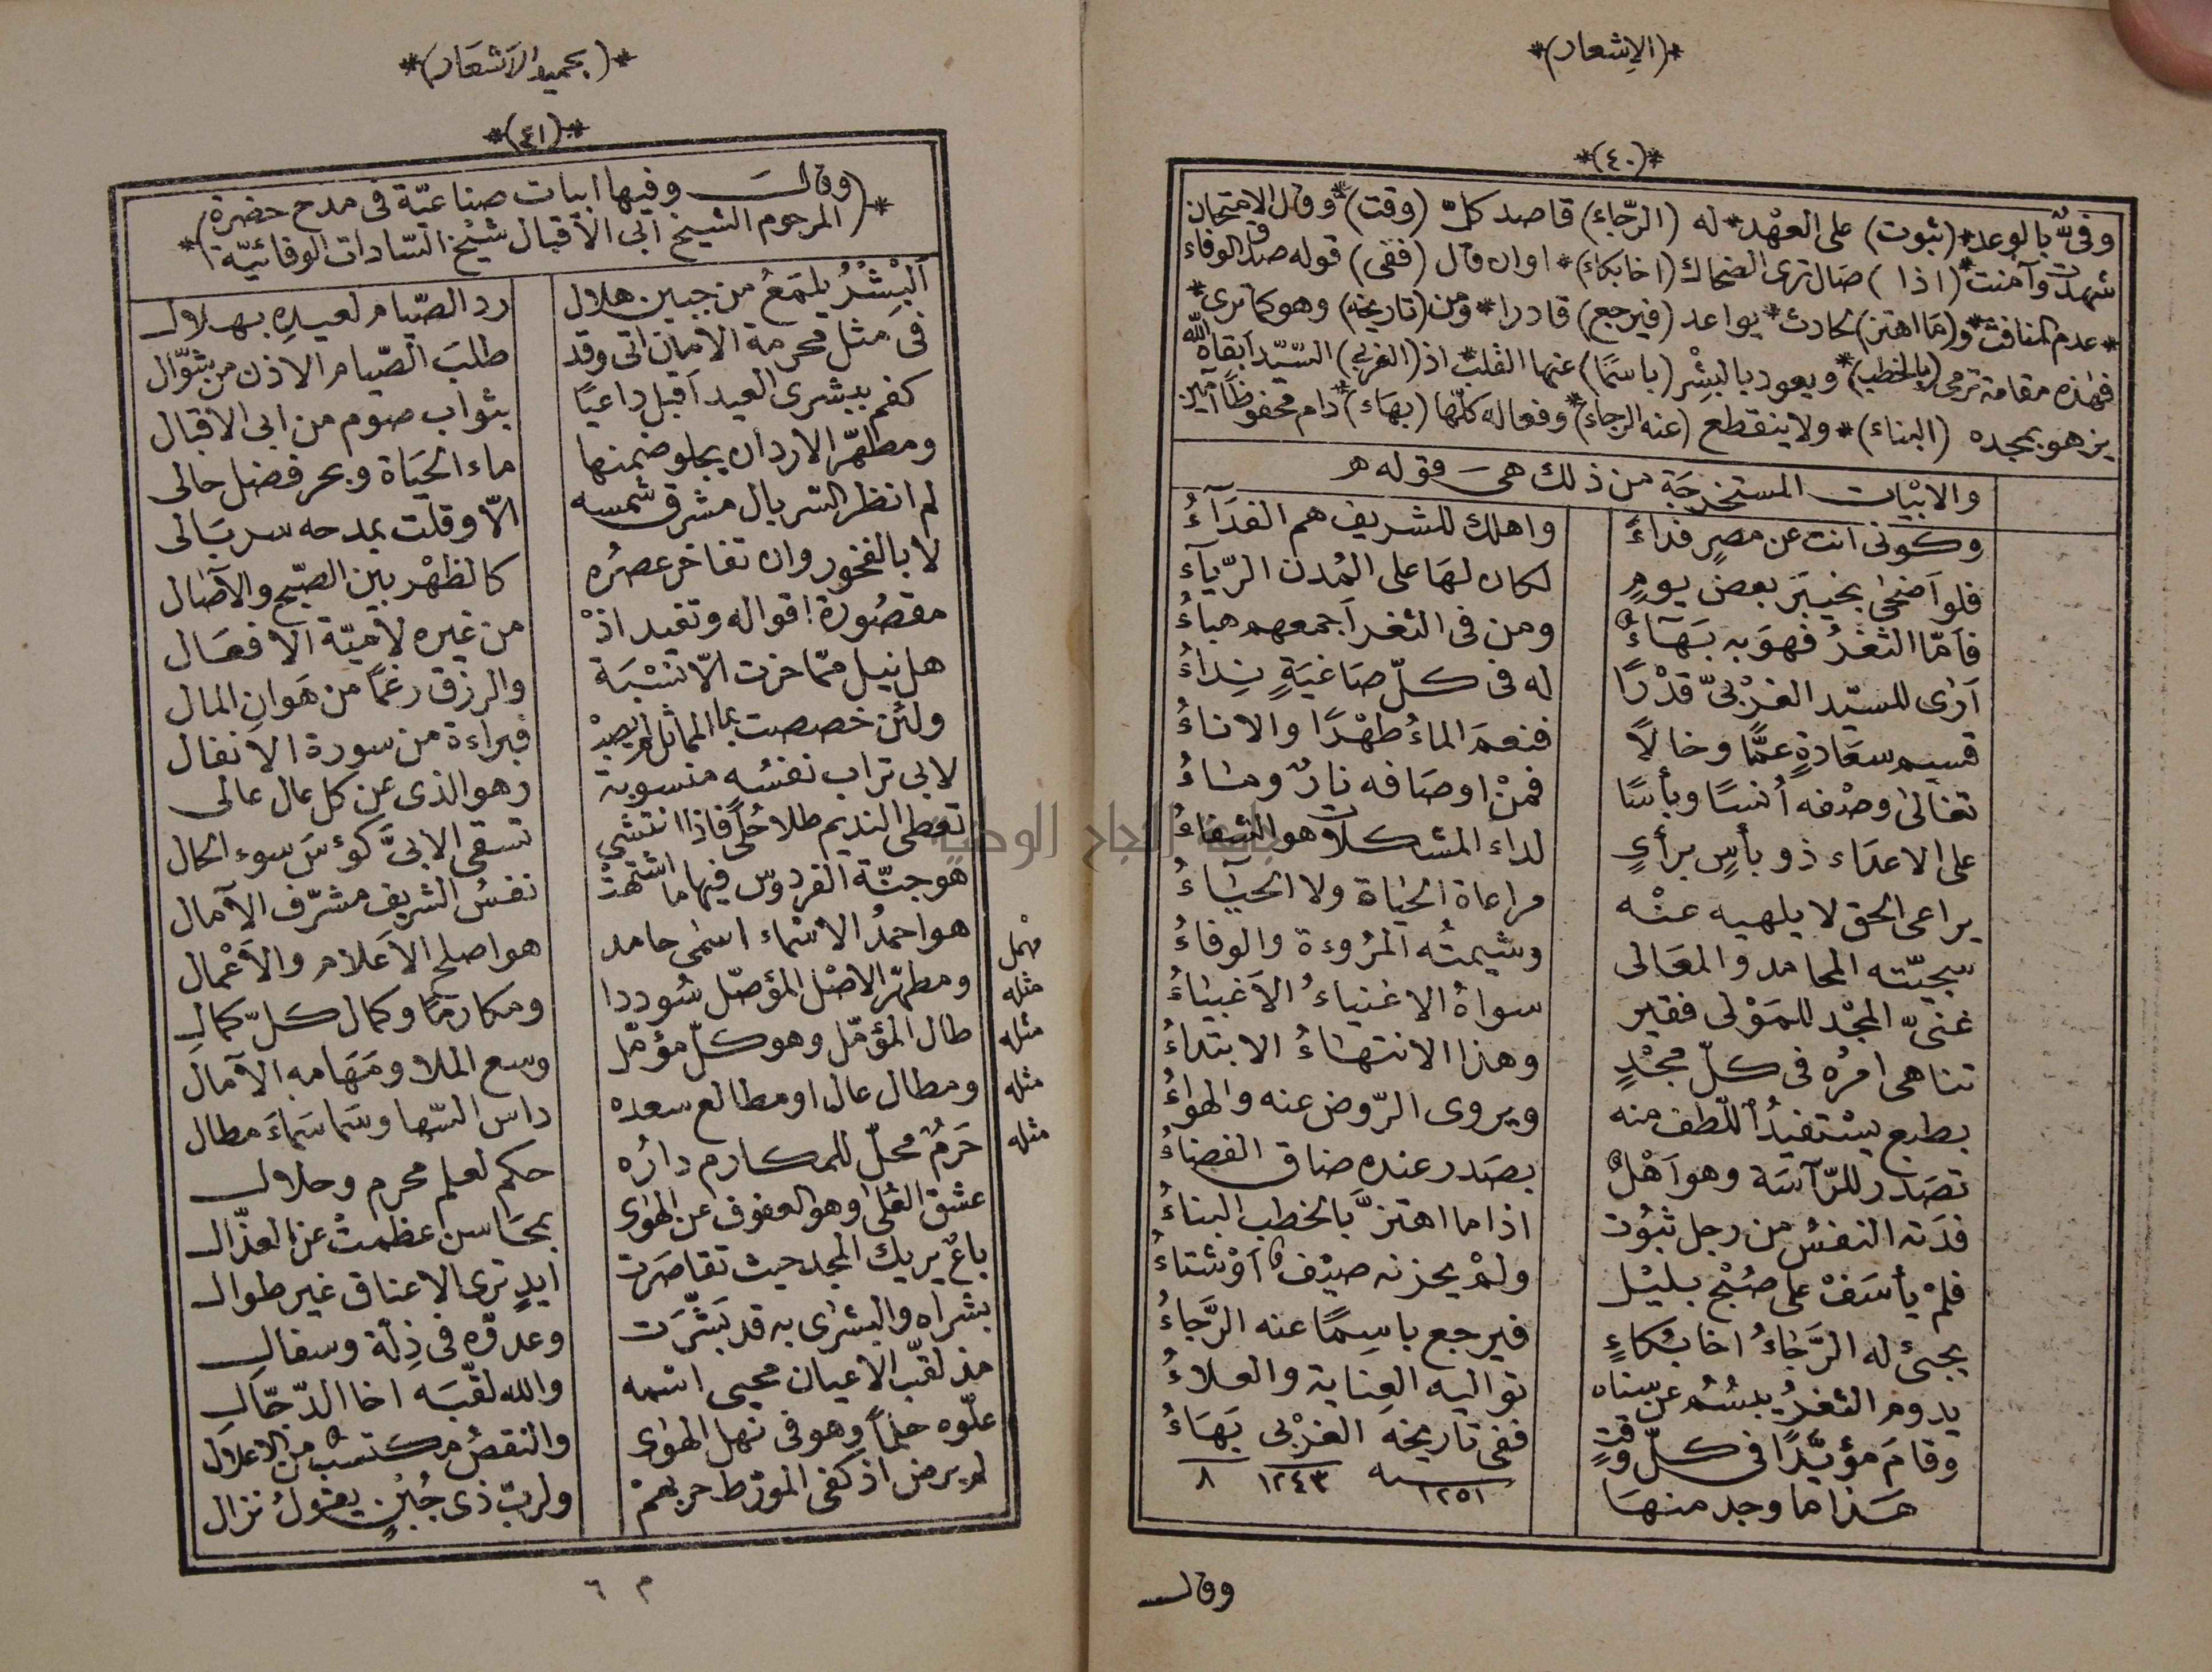 *(الإشعار)*
*(٤٠)*
وفىّ بالوعد* (ثبوت) على العهد* له (الرّجاء) قاصد كلّ (وقت)* وقال الامتحان
شهدت وآمنت* (اذا) صال ترى الضحاك (اخا بكاء)* اوان قال (ففى) قوله صدق الوفاء
* عدم المنافث* و(ما اهتز) لحادث* يواعد (فيرجع) قادرا* ومن (تاريخه) وهو كما ترى*
فهذه مقامة ترمى (بالخطب)* ويعود بالبشر (باسمًا) عنها القلب* اذ (الغربى) السّيّد أبقاه الله
يزهو بمجده (البناء)* ولا ينقطع (عنه الرجاء)* وفعاله كلّها (بهاء)* دام محفوظًا آمين
والابيات المستخرجة من ذلك هى قوله
وكونى انت عن مصرٍ فداءً واهلك للشريف هم الفدآءُ
فلو اضحى بخيبر بعض يومٍ لكان لها على المدن الريآء
فأمّا الثغرُ فهو به بهآءٌ ومن فى الثغر أجمعهم هباءُ
أرى للسيّد الغربىّ قدرًا له فى كلّ صاغيةٍ نداءُ
قسيم سعادةٍ عمًّا وخالًا فنعم الماءُ طهرًا والاناءُ
تغالى وصفه أنسًا وبأسًا فمن اوصافه نارٌ وماءُ
على الاعداء ذو بأسٍ برأىٍ لداء المشكلات هو الشفاءُ
يراعى الحق لا يلهيه عنه مراعاة الحياة ولا الحياءُ
سجيّته المحامد والمعالى وشيمتُه المروءة والوفاءُ
غنىّ المجد للمولى فقير سواهُ الاغنياءُ الاغبياءُ
تناهى امرُه فى كلّ مجدٍ وهذا الانتهاءُ الابتداءُ
بطبع يستفيدُ اللّطف منه ويروى الرّوض عنه والهواءُ
تصدّر للرّآسة وهو أهلٌ بصدر عنده ضاق الفضاءُ
فدته النفسُ من رجل ثبوت اذا ما اهتزّ بالخطب البناءُ
فلم يأسف على صبح بليل ولم يحزنه صيفٌ أو شتاءُ
يجئ له الرّجاءُ اخا بكاءٍ فيرجع باسمًا عنه الرّجاءُ
يدوم الثغرُ يبسُم عن سناه تواليه العناية والعلاءُ
وقام مؤيّدًا فى كلّ وقتٍ ففى تاريخه الغربى بهاءُ
هذا ما وجد منها ١٢٥١ سنه ١٢٤٣ ٨
وقال
*(بحميد الأشعار)*
*(٤١)*
*(وقال وفيها ابيات صناعيّة فى مدح حضرة)
(المرحوم الشيخ ابى الاقبال شيخ السّادات الوفائيّة)*
ألبشرُ يلمعُ من جبين هلال رد الصّيام لعيده بهلال
فى مثل محرمة الامان اتى وقد طلب الصّيام الاذن من شوّال
كفم ببشرى العيد أقبل داعيًا بثواب صوم من ابى الاقبال
ومطهّر الاردان يجلو ضمنها ماء الحياة وبحر فضل حالى
لم انظر السربال مشرق شمسه الّا وقلت بمدحه سربالى
لا بالفخور وان تفاخر عصرُه كالظهر بين الصّبح والآصال
مقصورة اقواله وتفيد اذْ من غيره لاميّة الافعال
هل نيل ممّا حزت الّا نسبة والرزق رغمًا من هوان المال
ولئن خصصت بما المماثل لم يصد فبراءة من سورة الانفال
لابى تراب نفسُه منسوبة وهو الذى عن كل عال عالى
تعطى النديم طلا حُلًى فاذا انتشى تسقى الابىّ كؤس سوء الحال
هو جنّة الفردوس فيها ما اشتهت نفسُ الشريف مشرّف الآمال
مهمل هو احمدُ الاسماء اسمى حامد هو اصلح الأعلام والأعمال
مثله ومطهّر الاصل المؤصّل سُوددا ومكارمًا وكمال كلّ كمال
مثله طال المؤمّل وهو كلّ مؤمّل وسع الملا ومهامه الآمال
مثله ومطال عال او مطالع سعده داس السّها وسما سماء مطال
مثله حرمٌ محلّ للمكارم دارُه حكم لعلم محرم وحلال
عشق العُلى وهو العفوف عن الهوى بمحاسن عظمت عن العذّال
باعٌ يريك المجد حيث تقاصرت أيدٍ ترى الاعناق غير طوال
بشراه والبشرى به قد بشّرت وعدوّه فى ذلّة وسفال
مذ لقّب الاعيان محيى اسمه والله لقّبه اخا الدّجّال
علّوه حلمًا وهو فى نهل الهوى والنقصُ مكتسبٌ من الاعلال
لم يرض اذ كفى المورّط حربهمْ ولربّ ذى جُبنٍ يقولُ نزال
م ٦